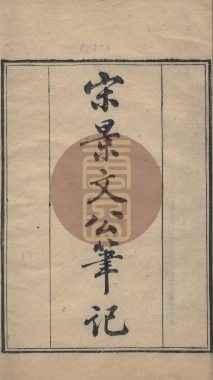 宋景文公筆記